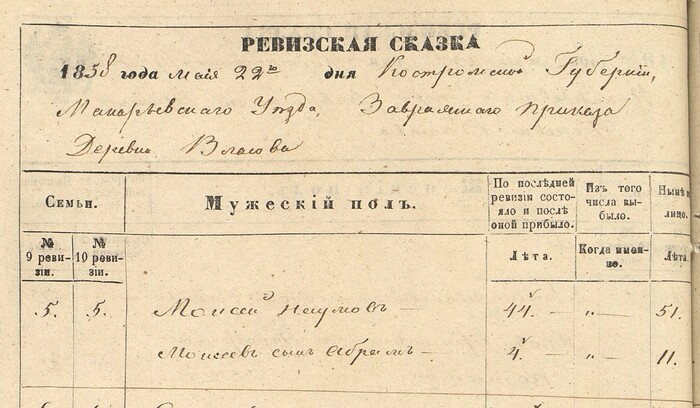 РЕВИЗСКАЯ СКАЗКА
1858 года мая 22го дня Костромской Губернии,
Макарьевскаго Уезда, приказа
Деревни Власова
Семьи.
№ 9 ревизіи.
№ 10 ревизіи.
Мужескій полъ.
По послѣдней ревизіи состояло и послѣ оной прибыло.
Изъ того числа выбыло.
Нынѣ
лицо.
Лѣта.
Когда именно.
Лѣта.
5. 5. Моисей Наумовъ — 44. „— 51.
Моисеевъ сынъ Абрамъ — 4. „— 11.